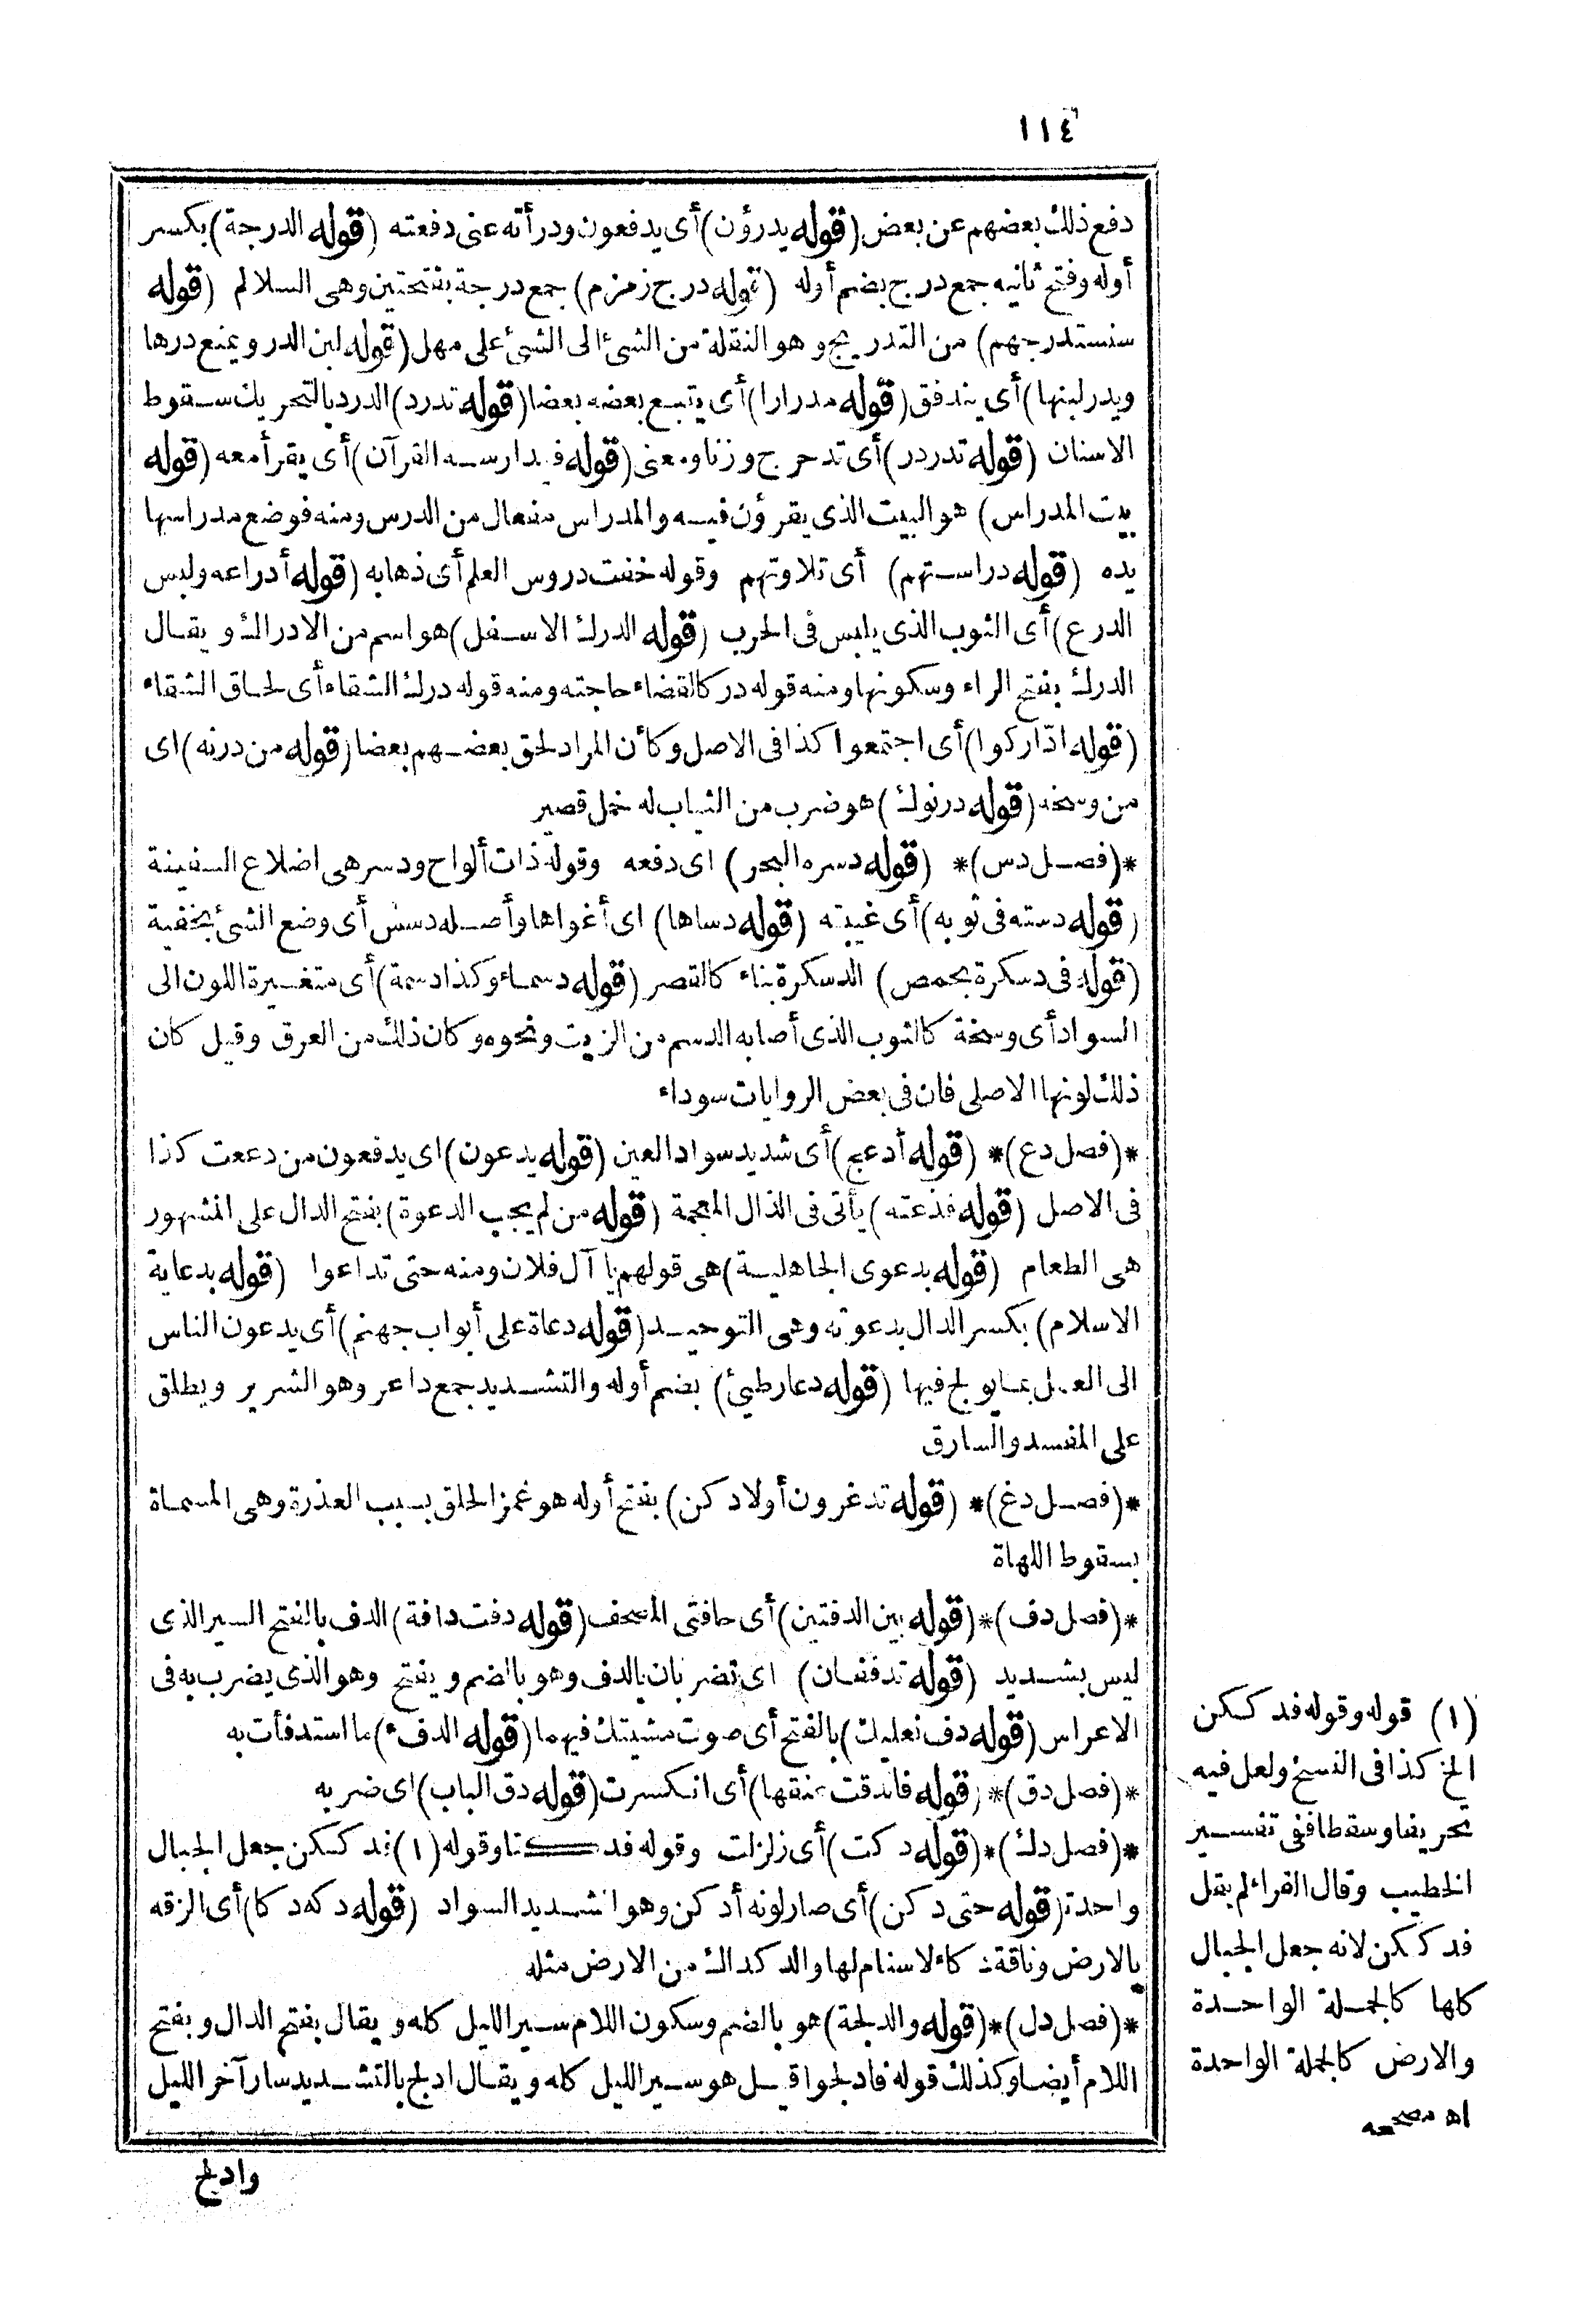 ١١٤
دفع ذلك بعضهم عن بعض (قوله يدرؤن) أى يدفعون ودرأته عنى دفعته (قوله الدرجة) بكسر
أوله وفتح ثانيه جمع درج بضم أوله (قوله درج زمزم) جمع درجة بفتحتين وهى السلالم (قوله
سنستدرجهم) من التدريج وهو النقلة من الشئ الى الشئ على مهل (قوله لبن الدر ويمنع درها
ويدر لبنها) أى يندفق (قوله مدرارا) أى يتبع بعضه بعضا (قوله تدرد) الدرد بالتحريك سقوط
الاسنان (قوله تدردر) أى تدحرج وزنا ومعنى (قوله فيدارسه القرآن) أى يقرأ معه (قوله
بيت المدراس) هو البيت الذى يقرؤن فيه والمدراس مفعال من الدرس ومنه فوضع مدراسها
يده (قوله دراستهم) أى تلاوتهم وقوله خفت دروس العلم أى ذهابه (قوله أدراعه ولبس
الدرع) أى الثوب الذى يلبس فى الحرب (قوله الدرك الاسفل) هو اسم من الادراك ويقال
الدرك بفتح الراء وسكونها ومنه قوله دركا لقضاء حاجته ومنه قوله درك الشقاء أى لحاق الشقاء
(قوله ادّاركوا) أى اجتمعوا كذا فى الاصل وكأن المراد لحق بعضهم بعضا (قوله من درنه) اى
من وسخه (قوله درنوك) هو ضرب من الثياب له خمل قصير
*(فصل دس)* (قوله دسره البحر) اى دفعه وقوله ذات ألواح ودسر هى اضلاع السفينة
(قوله دسته فى ثوبه) أى غيبته (قوله دساها) اى أغواها وأصله دسس أى وضع الشئ بخفية
(قوله فى دسكرة بحمص) الدسكرة بناء كالقصر (قوله دسماء وكذا دسمة) أى متغيرة اللون الى
السواد أى وسخة كالثوب الذى أصابه الدسم من الزيت ونحوه وكان ذلك من العرق وقيل كان
ذلك لونها الاصلى فان فى بعض الروايات سوداء
*(فصل دع)* (قوله أدعج) أى شديد سواد العين (قوله يدعون) اى يدفعون من دععت كذا
فى الاصل (قوله فذعته) يأتى فى الذال المعجمة (قوله من لم يجب الدعوة) بفتح الدال على المشهور
هى الطعام (قوله بدعوى الجاهلية) هى قولهم يا آل فلان ومنه حتى تداعوا (قوله بدعاية
الاسلام) بكسر الدال بدعوته وهى التوحيد (قوله دعاة على أبواب جهنم) أى يدعون الناس
الى العمل بما يولج فيها (قوله دعار طيئ) بضم أوله والتشديد جمع داعر وهو الشرير ويطلق
على المفسد والسارق
*(فصل دغ)* (قوله تدغرون أولادكن) بفتح أوله هو غمز الحلق بسبب العذرة وهى المسماة
بسقوط اللهاة
*(فصل دف)* (قوله بين الدفتين) أى حافتى المصحف (قوله دفت دافة) الدف بالفتح السير الذى
ليس بشديد (قوله تدففان) اى تضربان بالدف وهو بالضم ويفتح وهو الذى يضرب به فى
الاعراس (قوله دف نعليك) بالفتح أى صوت مشيتك فيهما (قوله الدفء) ما استدفأت به
*(فصل دق)* (قوله فاندقت عنقها) أى انكسرت (قوله دق الباب) اى ضربه
*(فصل دك)* (قوله دكت) أى زلزلت وقوله فدكتا وقوله (١) فدككن جعل الجبال
واحدة (قوله حتى دكن) أى صار لونه أدكن وهو الشديد السواد (قوله دكه دكا) أى الزقه
بالارض وناقة دكاء لا سنام لها والدكداك من الارض مثله
*(فصل دل)* (قوله والدلجة) هو بالضم وسكون اللام سير الليل كله ويقال بفتح الدال وبفتح
اللام أيضا وكذلك قوله فادلجوا قيل هو سير الليل كله ويقال ادلج بالتشديد سار آخر الليل
وادلج
(١) قوله وقوله فدككن
الخ كذا فى النسخ ولعل فيه
تحريفا وسقطا ففى تفسير
الخطيب وقال الفراء لم يقل
فدككن لانه جعل الجبال
كلها كالجملة الواحدة
والارض كالجملة الواحدة
اه مصححه